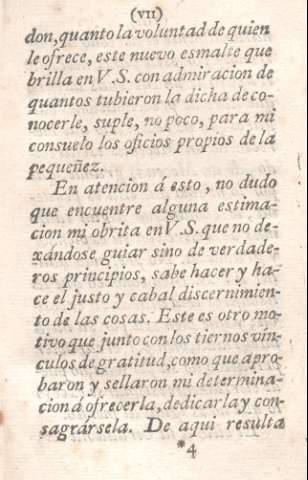 (VII)
don, quanto la voluntad de quien
le ofrece, este nuevo esmalte que
brilla en V. S. con admiracion de
quantos tubieron la dicha de co-
nocerle, suple, no poco, para mi
consuelo los oficios propios de la
pequeñez.
En atencion á esto, no dudo
que encuentre alguna estima-
cion mi obrita en V. S. que no de-
xándose guiar sino de verdade-
ros principios, sabe hacer y ha-
ce el justo y cabal discernimien-
to de las cosas. Este es otro mo-
tivo que junto con los tiernos vín-
culos de gratitud, como que apro-
baron y sellaron mi determina-
cion á ofrecerla, dedicarla y con-
sagrársela. De aqui resulta
*4